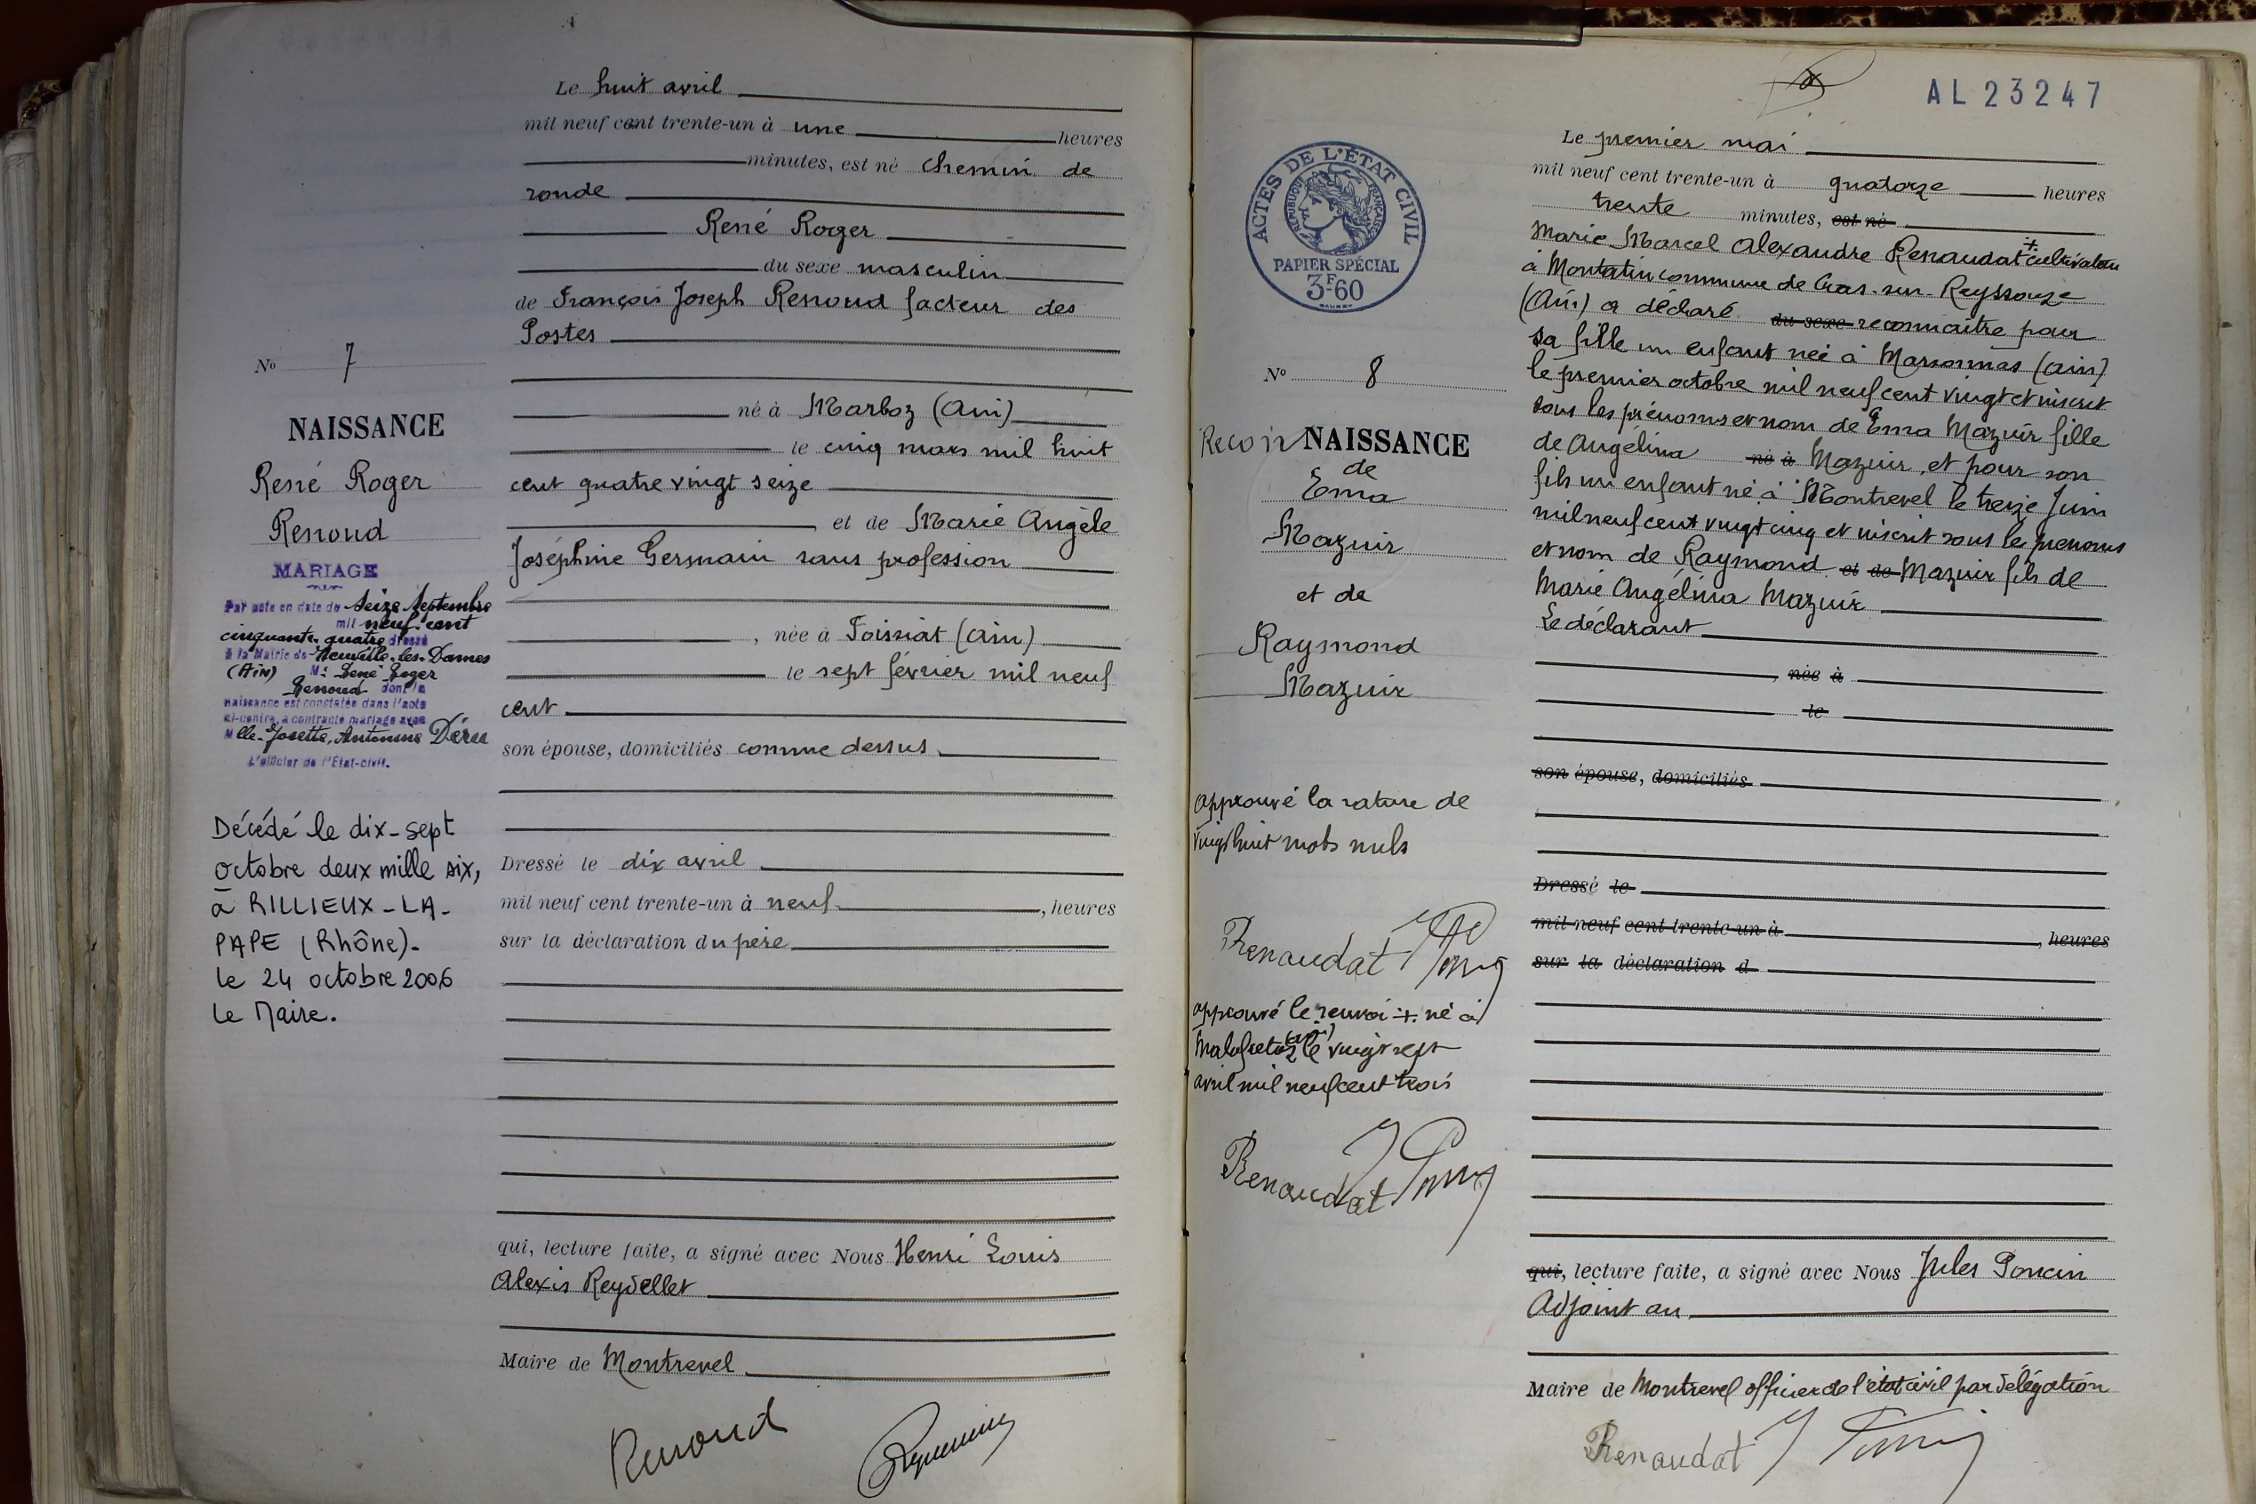 Le huit avril
mil neuf cent trente-un à une heures
minutes, est né chemin de
ronde
René Roger
du sexe masculin
de François Joseph Renoud facteur des
Postes
né à Marboz (Ain)
le cinq mars mil huit
cent quatre vingt seize
et de Marie Angèle
Joséphine Germain sans profession
, née à Foissiat (Ain)
le sept février mil neuf
cent
son épouse, domiciliés comme dessus
Dressé le dix avril
mil neuf cent trente-un à neuf, heures
sur la déclaration du père
qui, lecture faite, a signé avec Nous Henri Louis
Alexis Reydellet
Maire de Montrevel
Renoud
No 7
NAISSANCE
René Roger
Renoud
MARIAGE
Par acte en date du seize septembre
mil neuf cent
cinquante quatre dressé
à la Mairie de Neuville-les-Dames
(Ain) Mr René Roger
Renoud dont la
naissance est constatée dans l'acte
ci-contre, a contracté mariage avec
Mlle Josette, Antonine
L'officier de l'Etat-civil.
Décédé le dix-sept
octobre deux mille six,
à RILLIEUX-LA-
PAPE (Rhône)-
le 24 octobre 2006
Le Maire.
AL 23247
ACTES DE L'ÉTAT CIVIL
RÉPUBLIQUE FRANÇAISE
PAPIER SPÉCIAL
3F60
No 8
Recon NAISSANCE
de
Ema
Mazuir
et de
Raymond
Mazuir
approuvé la rature de
vingt huit mots nuls
Renaudat
approuvé le renvoi + né à
(Ain)
le vingt sept
avril mil neuf cent trois
Renaudat
Le premier mai
mil neuf cent trente-un à quatorze heures
trente minutes, est né
Marie Marcel Alexandre Renaudat + cultivateur
à Montatin commune de Cras-sur-Reyssouze
(Ain) a déclaré du sexe reconnaître pour
sa fille un enfant née à Marsonnas (Ain)
le premier octobre mil neuf cent vingt et inscrit
sous les prénoms et nom de Ema Mazuir fille
de Angélina né à Mazuir, et pour son
fils un enfant né à Montrevel le treize Juin
mil neuf cent vingt cinq et inscrit sous le prenoms
et nom de Raymond et de Mazuir fils de
Marie Angélina Mazuir
Le déclarant
, née à
le
son épouse, domiciliés
Dressé le
mil neuf cent trente-un à, heures
sur la déclaration d
qui, lecture faite, a signé avec Nous Jules Poncin
Adjoint au
Maire de Montrevel officier de l'état civil par délégation
Renaudat